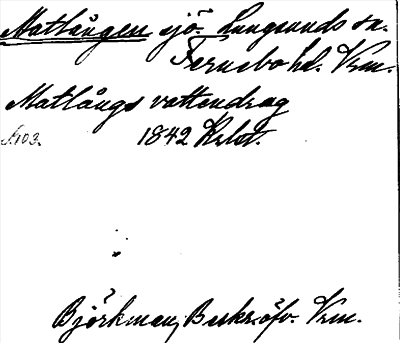 Matlången sjö. Lungsunds sn.
Fernebo hd. Vrm.
Matlångs vattendrag
s. 103. 1842 Krlst.
Björkman, Beskr. öfv. Vrm.